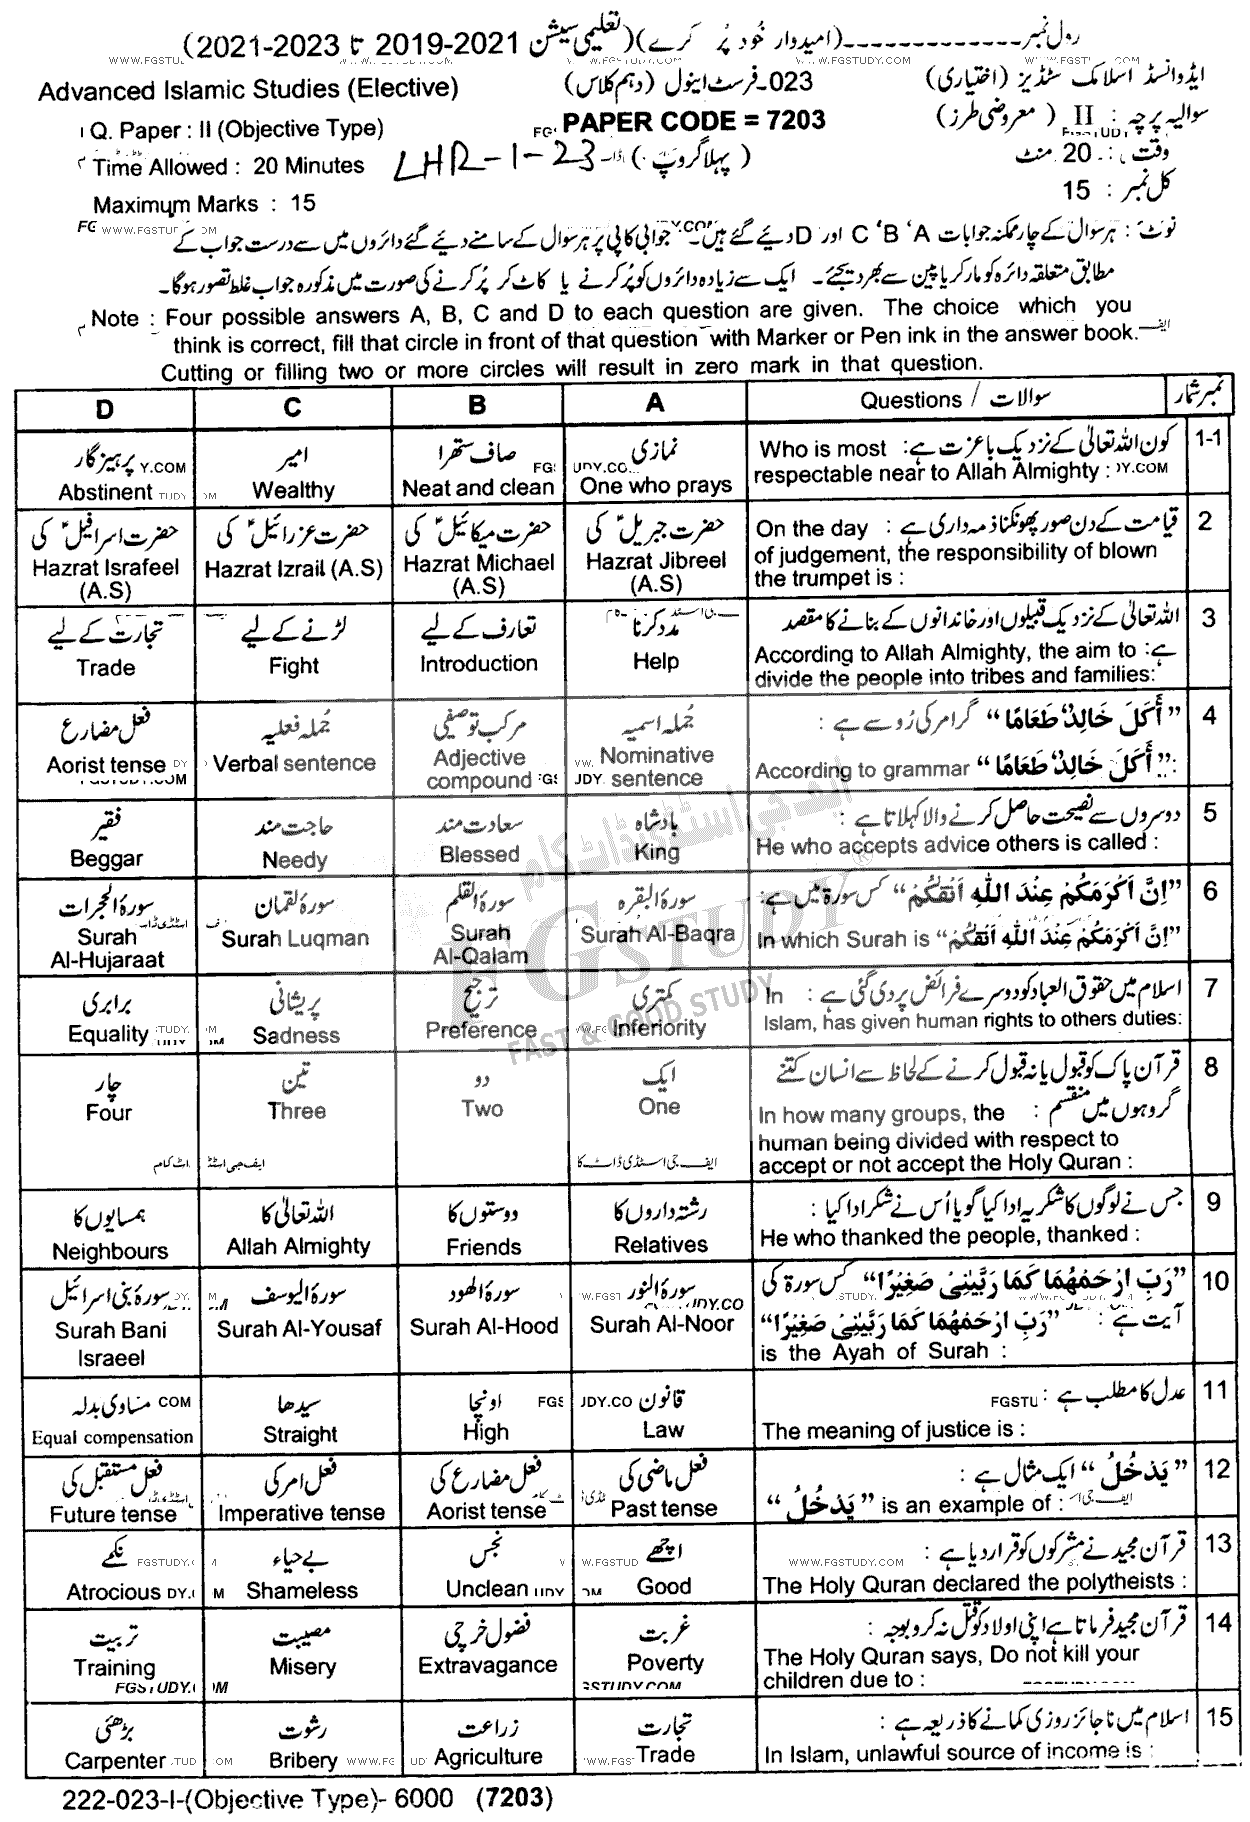 رول نمبر--------------(امیدوار خود پُر کرے)(تعلیمی سیشن 2019-2021 تا 2021-2023)
WWW.FGSTUDY.COM
ایڈوانسڈ اسلامک سٹڈیز (اختیاری) 023-فرسٹ اینول (دہم کلاس) Advanced Islamic Studies (Elective)
سوالیہ پرچہ : II (معروضی طرز) PAPER CODE = 7203 Q. Paper : II (Objective Type)
وقت : 20 منٹ (پہلا گروپ) LHR-1-23 Time Allowed : 20 Minutes
کل نمبر : 15 Maximum Marks : 15
نوٹ : ہر سوال کے چار ممکنہ جوابات A ' B ' C اور D دیئے گئے ہیں۔ جوابی کاپی پر ہر سوال کے سامنے دیئے گئے دائروں میں سے درست جواب کے
مطابق متعلقہ دائرہ کو مارکر یا پین سے بھر دیجئے۔ ایک سے زیادہ دائروں کو پُر کرنے یا کاٹ کر پُر کرنے کی صورت میں مذکورہ جواب غلط تصور ہوگا۔
Note : Four possible answers A, B, C and D to each question are given. The choice which you
think is correct, fill that circle in front of that question with Marker or Pen ink in the answer book.
Cutting or filling two or more circles will result in zero mark in that question.
D C B A Questions / سوالات نمبر شمار
1-1 کون اللہ تعالیٰ کے نزدیک باعزت ہے: Who is most
respectable near to Allah Almighty :
نمازی صاف ستھرا امیر پرہیزگار
One who prays Neat and clean Wealthy Abstinent
2 قیامت کے دن صور پھونکنا ذمہ داری ہے : On the day
of judgement, the responsibility of blown
the trumpet is :
حضرت جبریل ؑ کی حضرت میکائیل ؑ کی حضرت عزرائیل ؑ کی حضرت اسرافیل ؑ کی
Hazrat Jibreel (A.S) Hazrat Michael (A.S) Hazrat Izrail (A.S) Hazrat Israfeel (A.S)
3 اللہ تعالیٰ کے نزدیک قبیلوں اور خاندانوں کے بنانے کا مقصد
ہے: According to Allah Almighty, the aim to
divide the people into tribes and families:
مدد کرنا تعارف کے لیے لڑنے کے لیے تجارت کے لیے
Help Introduction Fight Trade
4 ”أَكَلَ خَالِدٌ طَعَامًا“ گرامر کی رُو سے ہے :
According to grammar ”أَكَلَ خَالِدٌ طَعَامًا“ :
جُملہ اسمیہ مرکب توصیفی جُملہ فعلیہ فعل مضارع
Nominative sentence Adjective compound Verbal sentence Aorist tense
5 دوسروں سے نصیحت حاصل کرنے والا کہلاتا ہے :
He who accepts advice others is called :
بادشاہ سعادت مند حاجت مند فقیر
King Blessed Needy Beggar
6 ”اِنَّ اَكْرَمَكُمْ عِنْدَ اللّٰهِ اَتْقٰكُمْ“ کس سورۃ میں ہے:
In which Surah is ”اِنَّ اَكْرَمَكُمْ عِنْدَ اللّٰهِ اَتْقٰكُمْ“
سورۃ البقرہ سورۃ القلم سورۃ لقمان سورۃ الحجرات
Surah Al-Baqra Surah Al-Qalam Surah Luqman Surah Al-Hujaraat
7 اسلام میں حقوق العباد کو دوسرے فرائض پر دی گئی ہے : In
Islam, has given human rights to others duties:
کمتری ترجیح پریشانی برابری
Inferiority Preference Sadness Equality
8 قرآن پاک کو قبول یا نہ قبول کرنے کے لحاظ سے انسان کتنے
گروہوں میں منقسم : In how many groups, the
human being divided with respect to
accept or not accept the Holy Quran :
ایک دو تین چار
One Two Three Four
9 جس نے لوگوں کا شکریہ ادا کیا گویا اُس نے شکر ادا کیا :
He who thanked the people, thanked :
رشتہ داروں کا دوستوں کا اللہ تعالیٰ کا ہمسایوں کا
Relatives Friends Allah Almighty Neighbours
10 ”رَبِّ ارْحَمْهُمَا كَمَا رَبَّيٰنِىْ صَغِيْرًا“ کس سورۃ کی
آیت ہے : ”رَبِّ ارْحَمْهُمَا كَمَا رَبَّيٰنِىْ صَغِيْرًا“
is the Ayah of Surah :
سورۃ النور سورۃ الھود سورۃ الیوسف سورۃ بنی اسرائیل
Surah Al-Noor Surah Al-Hood Surah Al-Yousaf Surah Bani Israeel
11 عدل کا مطلب ہے :
The meaning of justice is :
قانون اونچا سیدھا مساوی بدلہ
Law High Straight Equal compensation
12 ”يَدْخُلُ“ ایک مثال ہے :
”يَدْخُلُ“ is an example of :
فعل ماضی کی فعل مضارع کی فعل امر کی فعل مستقبل کی
Past tense Aorist tense Imperative tense Future tense
13 قرآن مجید نے مشرکوں کو قرار دیا ہے :
The Holy Quran declared the polytheists :
اچھے نجس بے حیاء نکمے
Good Unclean Shameless Atrocious
14 قرآن مجید فرماتا ہے اپنی اولاد کو قتل نہ کرو بوجہ :
The Holy Quran says, Do not kill your
children due to :
غربت فضول خرچی مصیبت تربیت
Poverty Extravagance Misery Training
15 اسلام میں ناجائز روزی کمانے کا ذریعہ ہے :
In Islam, unlawful source of income is :
تجارت زراعت رشوت بڑھئی
Trade Agriculture Bribery Carpenter
ایف جی اسٹڈی ڈاٹ کام
FGSTUDY ®
FAST & GOOD STUDY
222-023-I-(Objective Type)- 6000 (7203)